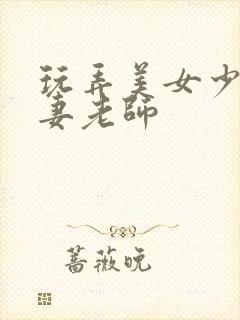 玩弄美女少
妻老师
蔷薇晚